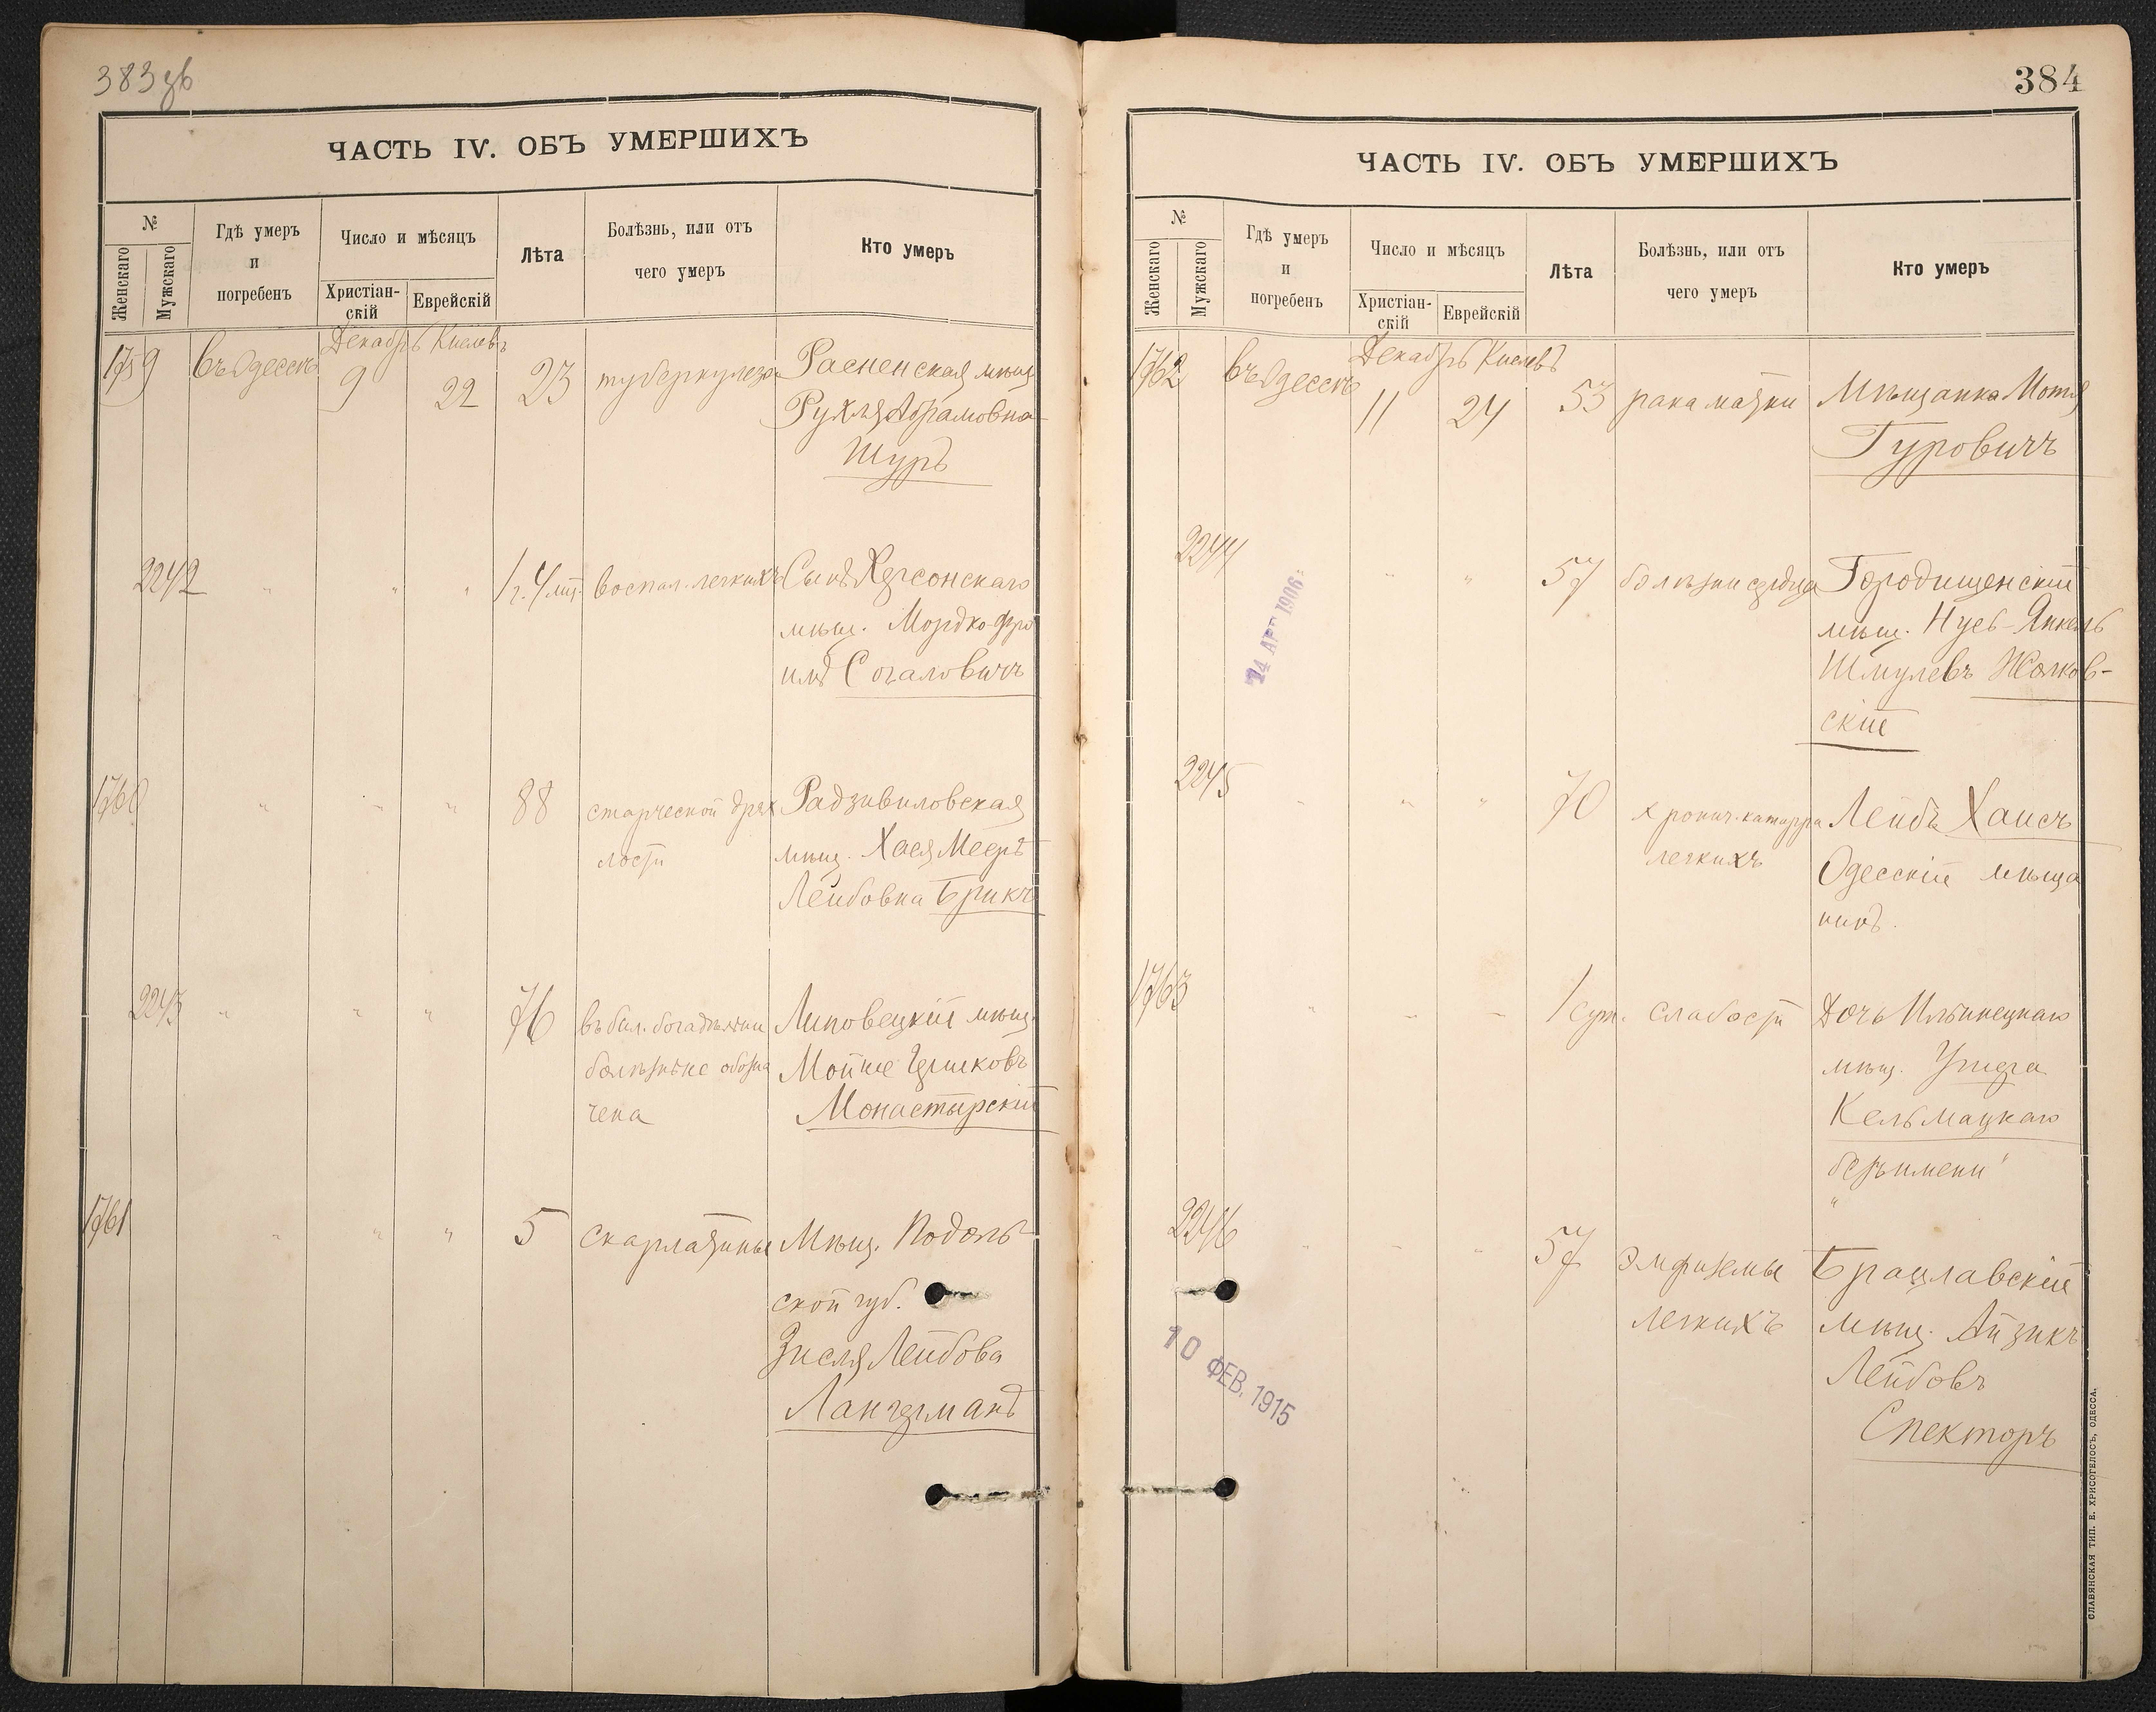 383 зв
ЧАСТЬ IV. ОБЪ УМЕРШИХЪ
№
Женскаго
Мужскаго
Гдѣ умеръ
и
погребенъ
Число и мѣсяцъ
Христіан-
скій
Еврейскій
Лѣта
Болѣзнь, или отъ
чего умеръ
Кто умеръ
1759
въ Одессѣ
Декабрь Кислевъ
9
22
23
туберкулеза
Расненская мѣщ.
Рухля Абрамовна
Шуръ
2242
" " "
1 г. 4 мѣс.
воспал. легкихъ
Сынъ Херсонскаго
мѣщ. Мордко-Фро
имъ Согаловичъ
1760
" " "
88
старческой дрях
лости
Радзивиловская
мѣщ. Хася Мееръ
Лейбовна Брикъ
2243
" " "
76
въ бил. богадѣльни
болѣзнь не обозна
чена
Липовецкій мѣщ.
Мойше Гершковъ
Монастырскій
1761
" " "
5
скарлатины
Мѣщ. Подоль
ской губ.
Зисля Лейбова
Лангерманъ
384
ЧАСТЬ IV. ОБЪ УМЕРШИХЪ
№
Женскаго
Мужскаго
Гдѣ умеръ
и
погребенъ
Число и мѣсяцъ
Христіан-
скій
Еврейскій
Лѣта
Болѣзнь, или отъ
чего умеръ
Кто умеръ
1762
въ Одессѣ
Декабрь Кислевъ
11
24
53
рака матки
Мѣщанка Мотя
Гуровичъ
2244
24 АПР 1906
" "
57
болѣзни сердца
Городищенскій
мѣщ. Нусь-Янкель
Шмулевъ Жолков-
скій
2245
" " "
70
хронич. катарра
легкихъ
Лейбъ Хаисъ
Одесскій мѣща
нинъ.
1763
" " "
1 сут.
слабости
Дочь Ильинецкаго
мѣщ. Ушера
Кельмацкаго
безъ имени
2246
" " "
57
эмфиземы
легкихъ
Брацлавскій
мѣщ. Айзикъ
Лейбовъ
Спекторъ
10 ФЕВ. 1915
СЛАВЯНСКАЯ ТИП. Е. ХРИСОГЕЛОСЪ, ОДЕССА.